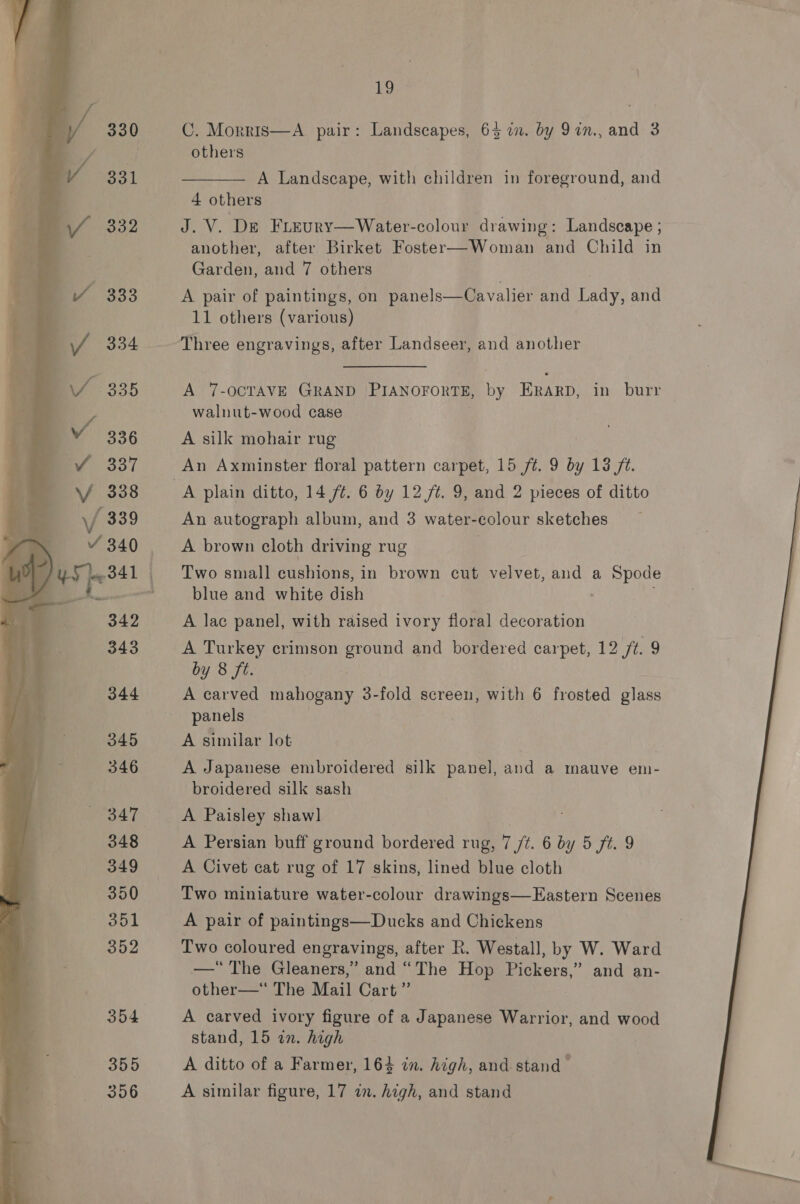 19
✓ 330 C. Morris—A pair: Landscapes, 6½ in. by 9 in., and 3
others
✓ 331 ——— A Landscape, with children in foreground, and
4 others
✓ 332 J. V. De Fleury—Water-colour drawing: Landscape;
another, after Birket Foster—Woman and Child in
Garden, and 7 others
✓ 333 A pair of paintings, on panels—Cavalier and Lady, and
11 others (various)
✓ 334 Three engravings, after Landseer, and another
✓ 335 A 7-octave Grand Pianoforte, by Erard, in burr
walnut-wood case
✓ 336 A silk mohair rug
✓ 337 An Axminster floral pattern carpet, 15 ft. 9 by 13 ft.
✓ 338 A plain ditto, 14 ft. 6 by 12 ft. 9, and 2 pieces of ditto
✓ 339 An autograph album, and 3 water-colour sketches
✓ 340 A brown cloth driving rug
341 Two small cushions, in brown cut velvet, and a Spode
blue and white dish
342 A lac panel, with raised ivory floral decoration
343 A Turkey crimson ground and bordered carpet, 12 ft. 9
by 8 ft.
344 A carved mahogany 3-fold screen, with 6 frosted glass
panels
345 A similar lot
346 A Japanese embroidered silk panel, and a mauve em-
broidered silk sash
347 A Paisley shawl
348 A Persian buff ground bordered rug, 7 ft. 6 by 5 ft. 9
349 A Civet cat rug of 17 skins, lined blue cloth
350 Two miniature water-colour drawings—Eastern Scenes
351 A pair of paintings—Ducks and Chickens
352 Two coloured engravings, after R. Westall, by W. Ward
—"The Gleaners," and "The Hop Pickers," and an-
other—"The Mail Cart"
354 A carved ivory figure of a Japanese Warrior, and wood
stand, 15 in. high
355 A ditto of a Farmer, 16½ in. high, and stand
356 A similar figure, 17 in. high, and stand